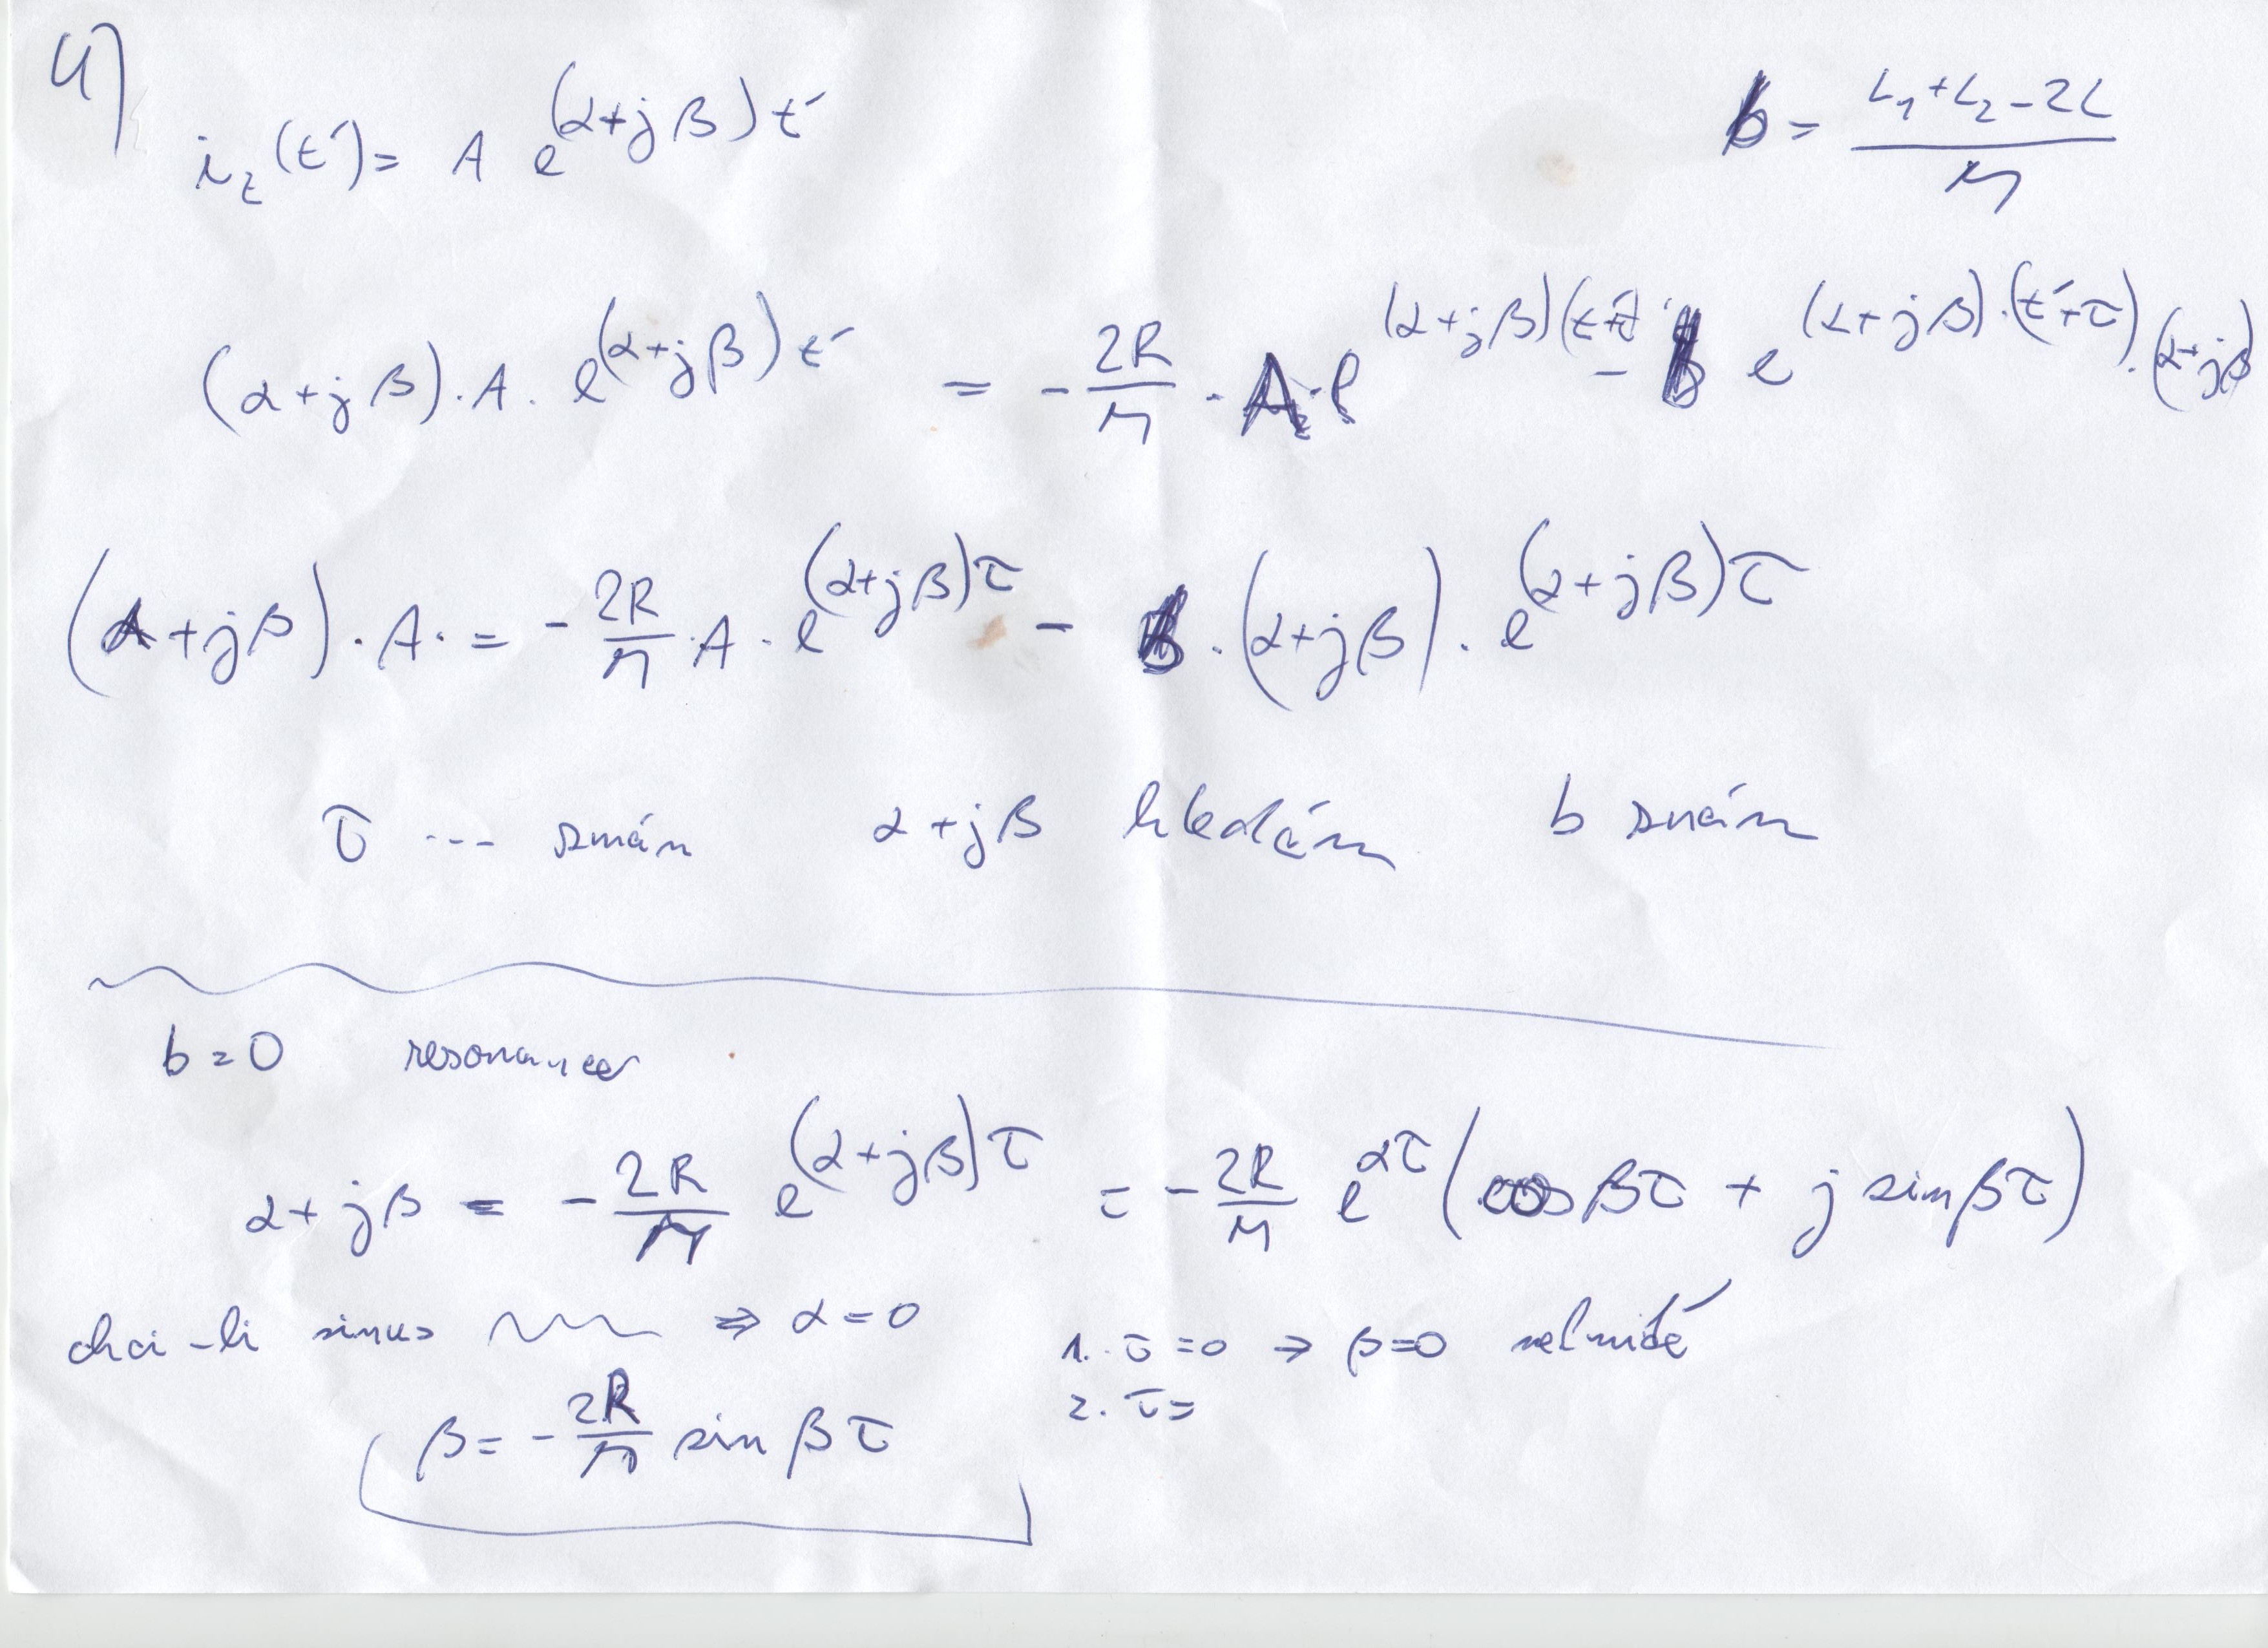 4)
i₂(t') = A e^(α+jβ)t'
b = (L₁+L₂−2L)/M
(α+jβ).A. e^(α+jβ)t' = −2R/M . A.e^(α+jβ)(t'+τ) − b e^(α+jβ).(t'+τ) .(α+jβ)
(α+jβ).A. = −2R/M .A. e^(α+jβ)τ − b.(α+jβ). e^(α+jβ)τ
τ --- znám α+jβ hledám b znám
b=0 resonance
α+jβ = −2R/M e^(α+jβ)τ = −2R/M e^ατ (cos βτ + j sin βτ)
chci-li sinus ⇒ α=0
1. τ=0 ⇒ β=0
2. τ=
β = −2R/M sin βτ